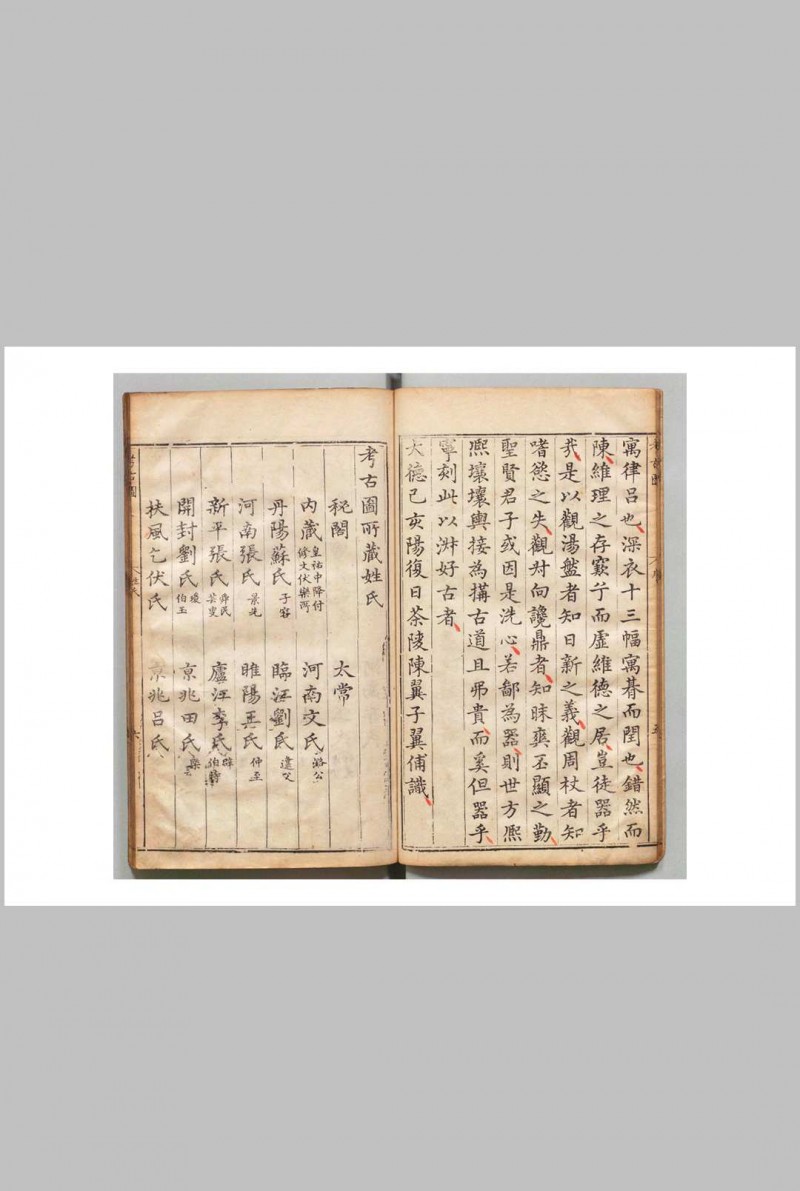 寓律呂也深衣十三幅寓朞而閏也錯然而
陳維理之存窾乎而虛維德之居豈徒器乎
㢤是以觀湯盤者知日新之義觀周杖者知
嗜慾之失觀対向讒鼎者知昧爽丕顯之勤
聖賢君子或因是洗心若鄙為器則世方熈
熈壤壤輿接為搆古道且弗貴而奚但器乎
寧刻此以淑好古者
大德己亥陽復日茶陵陳翼子翼俌識
考古圖
序
五
考古圖所藏姓氏
秘閣 太常
内藏 皇祐中降付 修文伏樂所 河南文氏 潞公
丹陽蘇氏 子容 臨江劉氏
河南張氏 景先 睢陽王氏 仲至
新平張氏 舜民 芸叟 廬江李氏
開封劉氏 瑗 伯玉 京兆田氏
扶風乞伏氏 京兆呂氏
考古圖
姓氏
六